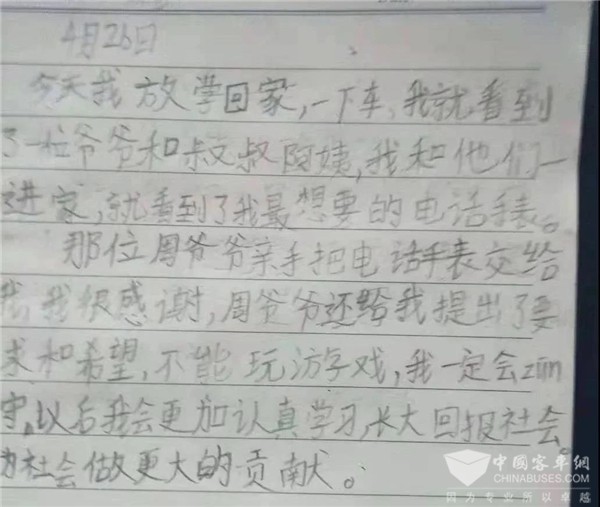 4月26日
今天我放学回家,一下车,我就看到
了一位爷爷和叔叔阿姨,我和他们一
进家,就看到了我最想要的电话手表。
那位周爷爷亲手把电话手表交给
我,我很感谢,周爷爷还给我提出了要
求和希望,不能玩游戏,我一定会zūn
守,以后我会更加认真学习,长大回报社会。
为社会做更大的贡献。
中國客车網
CHINABUSES.COM
因为专业所以卓越